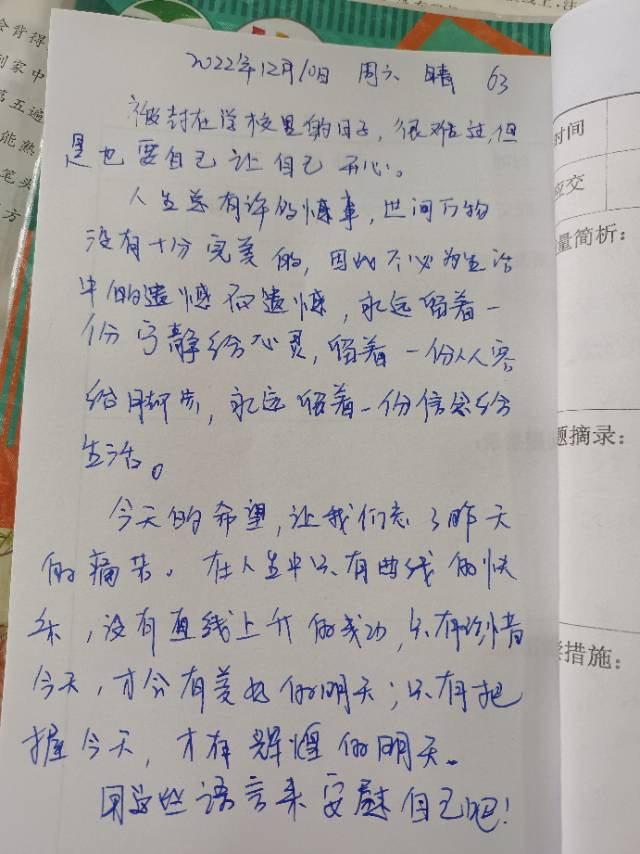 会背得
到家中
第五遍
能熟
笔头
方
2022年12月10日 周六 晴 63
被封在学校里的日子，很难过，但
是也要自己让自己开心。
人生总有许的憾事，世间万物
没有十分完美的，因此不必为生活
中的遗憾而遗憾，永远留着一
份宁静给心灵，留着一份从容
给脚步，永远留着一份信念给
生活。
今天的希望，让我们忘了昨天
的痛苦。在人生中只有曲线的快
乐，没有直线上升的成功，只有珍惜
今天，才会有美好的明天；只有把
握今天，才有辉煌的明天。
用这些语言来安慰自己吧！
时间
应交
量简析：
题摘录：
措施：